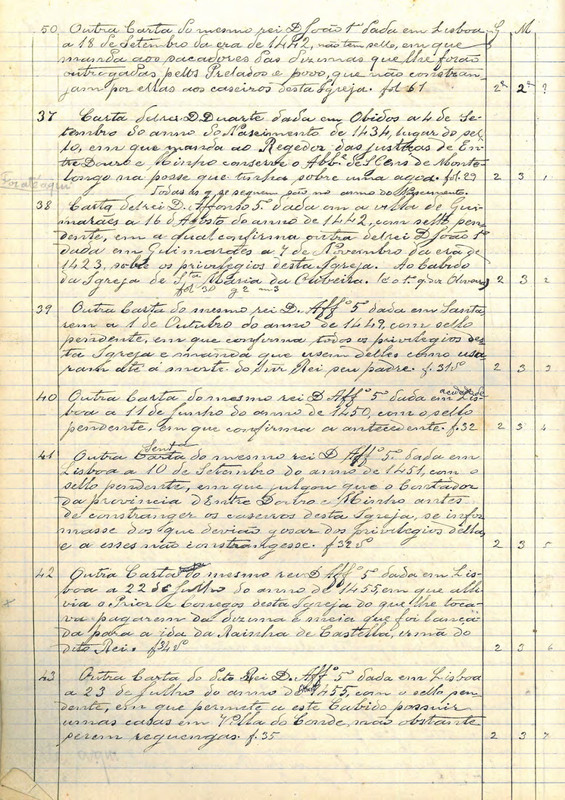 G M
50 Outra Carta do mesmo rei D. João 1º dada em Lisboa
a 18 de Setembro da era de 1442, não tem sello, em que
manda aos sacadores das dizimas que lhe forão
outrogadas pellos Prelados e povo, que não constran-
jam por ellas aos caseiros desta Igreja. fol 61 2ª 2ª ?
37 Carta delrei D. Duarte dada em Obidos a 4 de Se-
tembro do anno do Nascimento de 1434, lugar do sel-
lo, em que manda ao Regedor das justiças de En-
tre Douro e Minho conserve o Abbe de S. Clens de Monte
longo na posse que tinha sobre uma agoa. fol. 29 2 3 1
Foi até aqui
Todas as q se seguem são no anno do Nascimento.
38 Carta delrei D. Affonso 5º dada em a villa de Gui-
marães a 16 d'Agosto do anno de 1442, com sello pen-
dente, em a qual confirma outra delrei D. João 1º
dada em Guimarães a 7 de Novembro da era de
1423, sobre os privilegios desta Igreja. Ao Cabido
da Igreja de Sta Maria da Oliveira. 2 3 2
fol 30 g 2 m 3
39 Outra Carta do mesmo rei D. Affº 5º dada em Santa-
rem a 1 de Outubro do anno de 1449, com sello
pendente, em que confirma todos os privilegios des-
ta Igreja e manda que usem delles como usa-
ram até á morte do Snr Rei seu padre. f. 31vº 2 3 3
40 Outra Carta do mesmo rei D. Affº 5º dada em Lis-
boa a 11 de Junho do anno de 1450, com o sello
pendente, em que confirma a antecedente. f. 32 2 3 4
Sentª
41 Outra Carta do mesmo rei D. Affº 5º dada em
Lisboa a 10 de Setembro do anno de 1451, com o
sello pendente, em que julgou que o Contador
da provincia d'Entre Douro e Minho antes
de constranger os caseiros desta Igreja, se infor-
masse dos que devião gosar dos privilegios della,
e a esses não constrangesse. f 32 vº 2 3 5
42 Outra Carta do mesmo rei D. Affº 5º dada em Lis-
boa a 22 de Julho do anno de 1455, em que alli-
via o Prior e Conegos desta Igreja do que lhe toca-
va pagarem da dizima e meia que foi lança-
da para a ida da Rainha de Castella, irmã do
dito Rei. f 34 vº 2 3 6
43 Outra Carta do dito Rei D. Affº 5º dada em Lisboa
a 23 de Julho do anno de 1455, com o sello pen-
dente, em que permete a este Cabido possuir
umas casas em Villa do Conde, não obstante
serem reguengas. f. 35 2 3 7